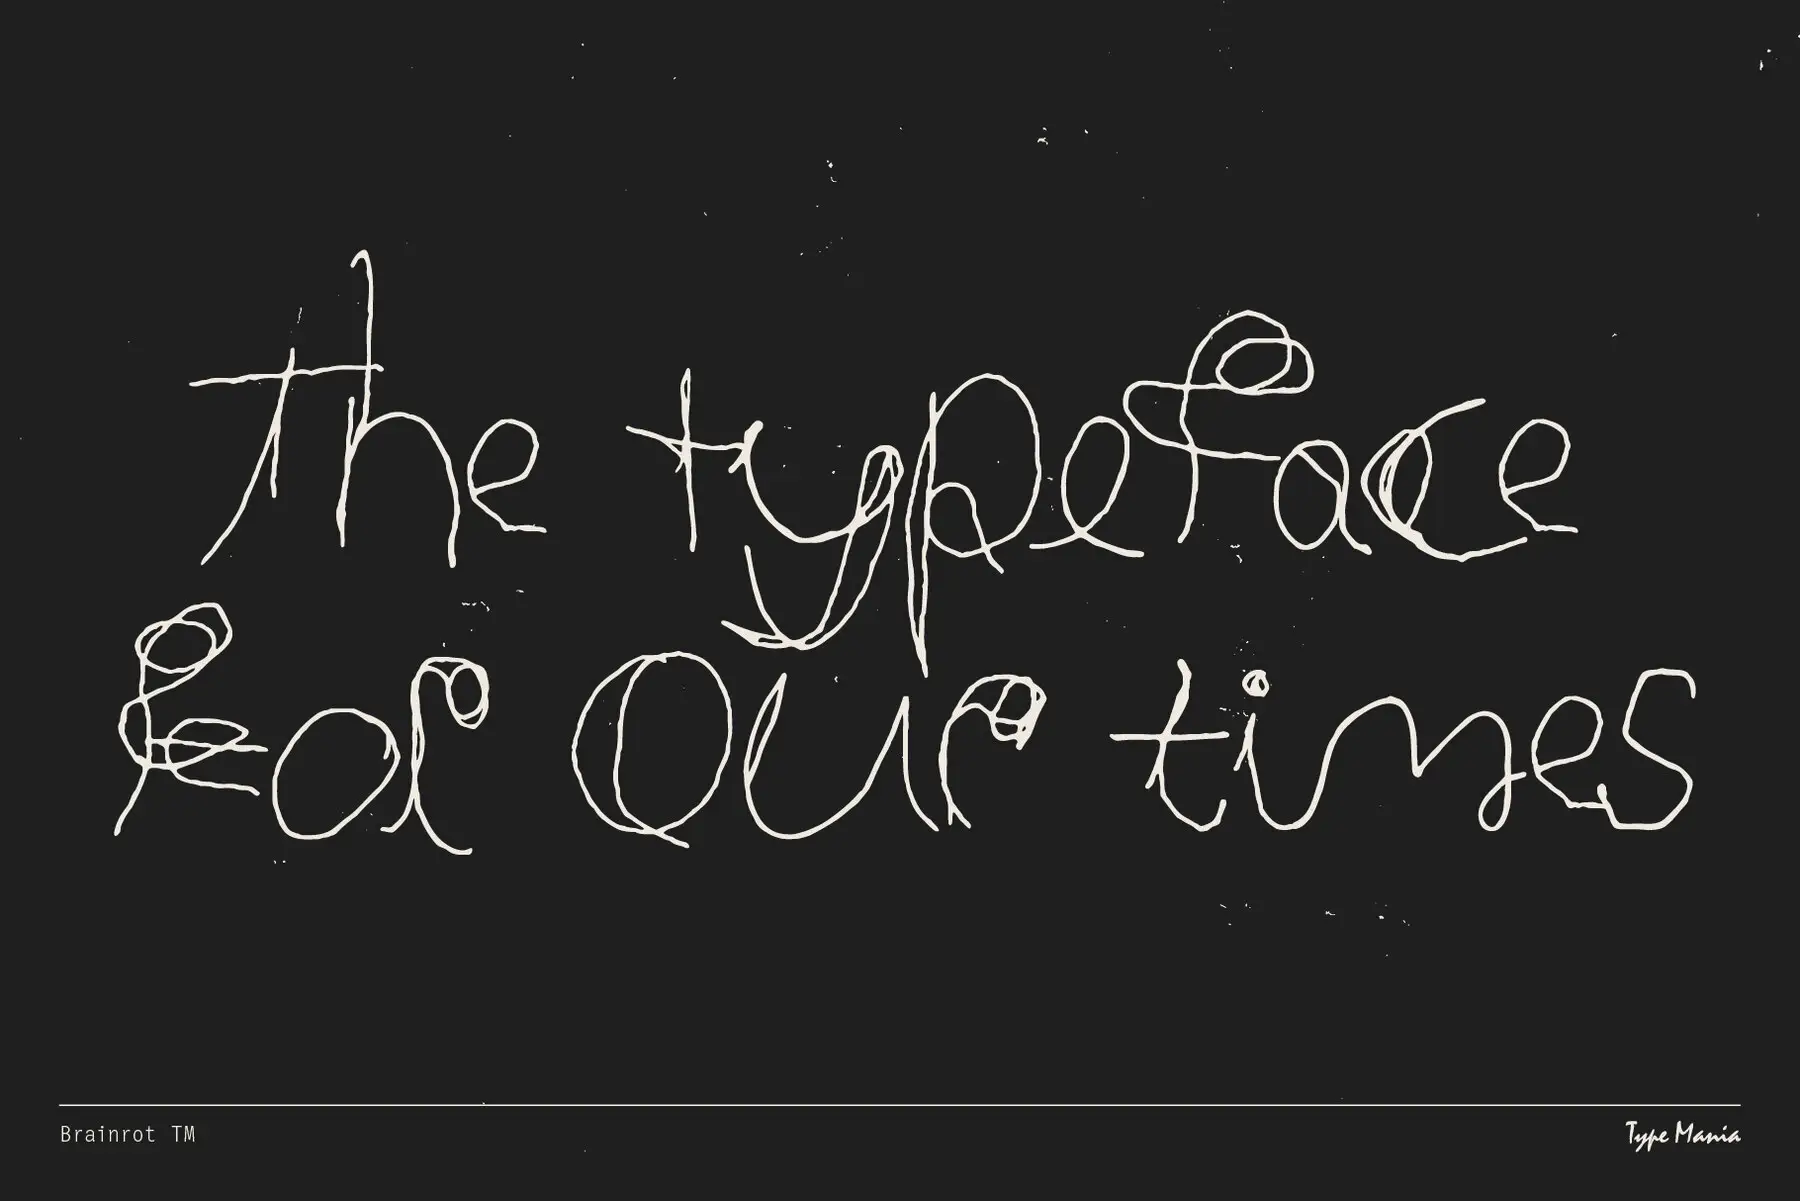 the typeface
for our times
Brainrot TM
Type Mania